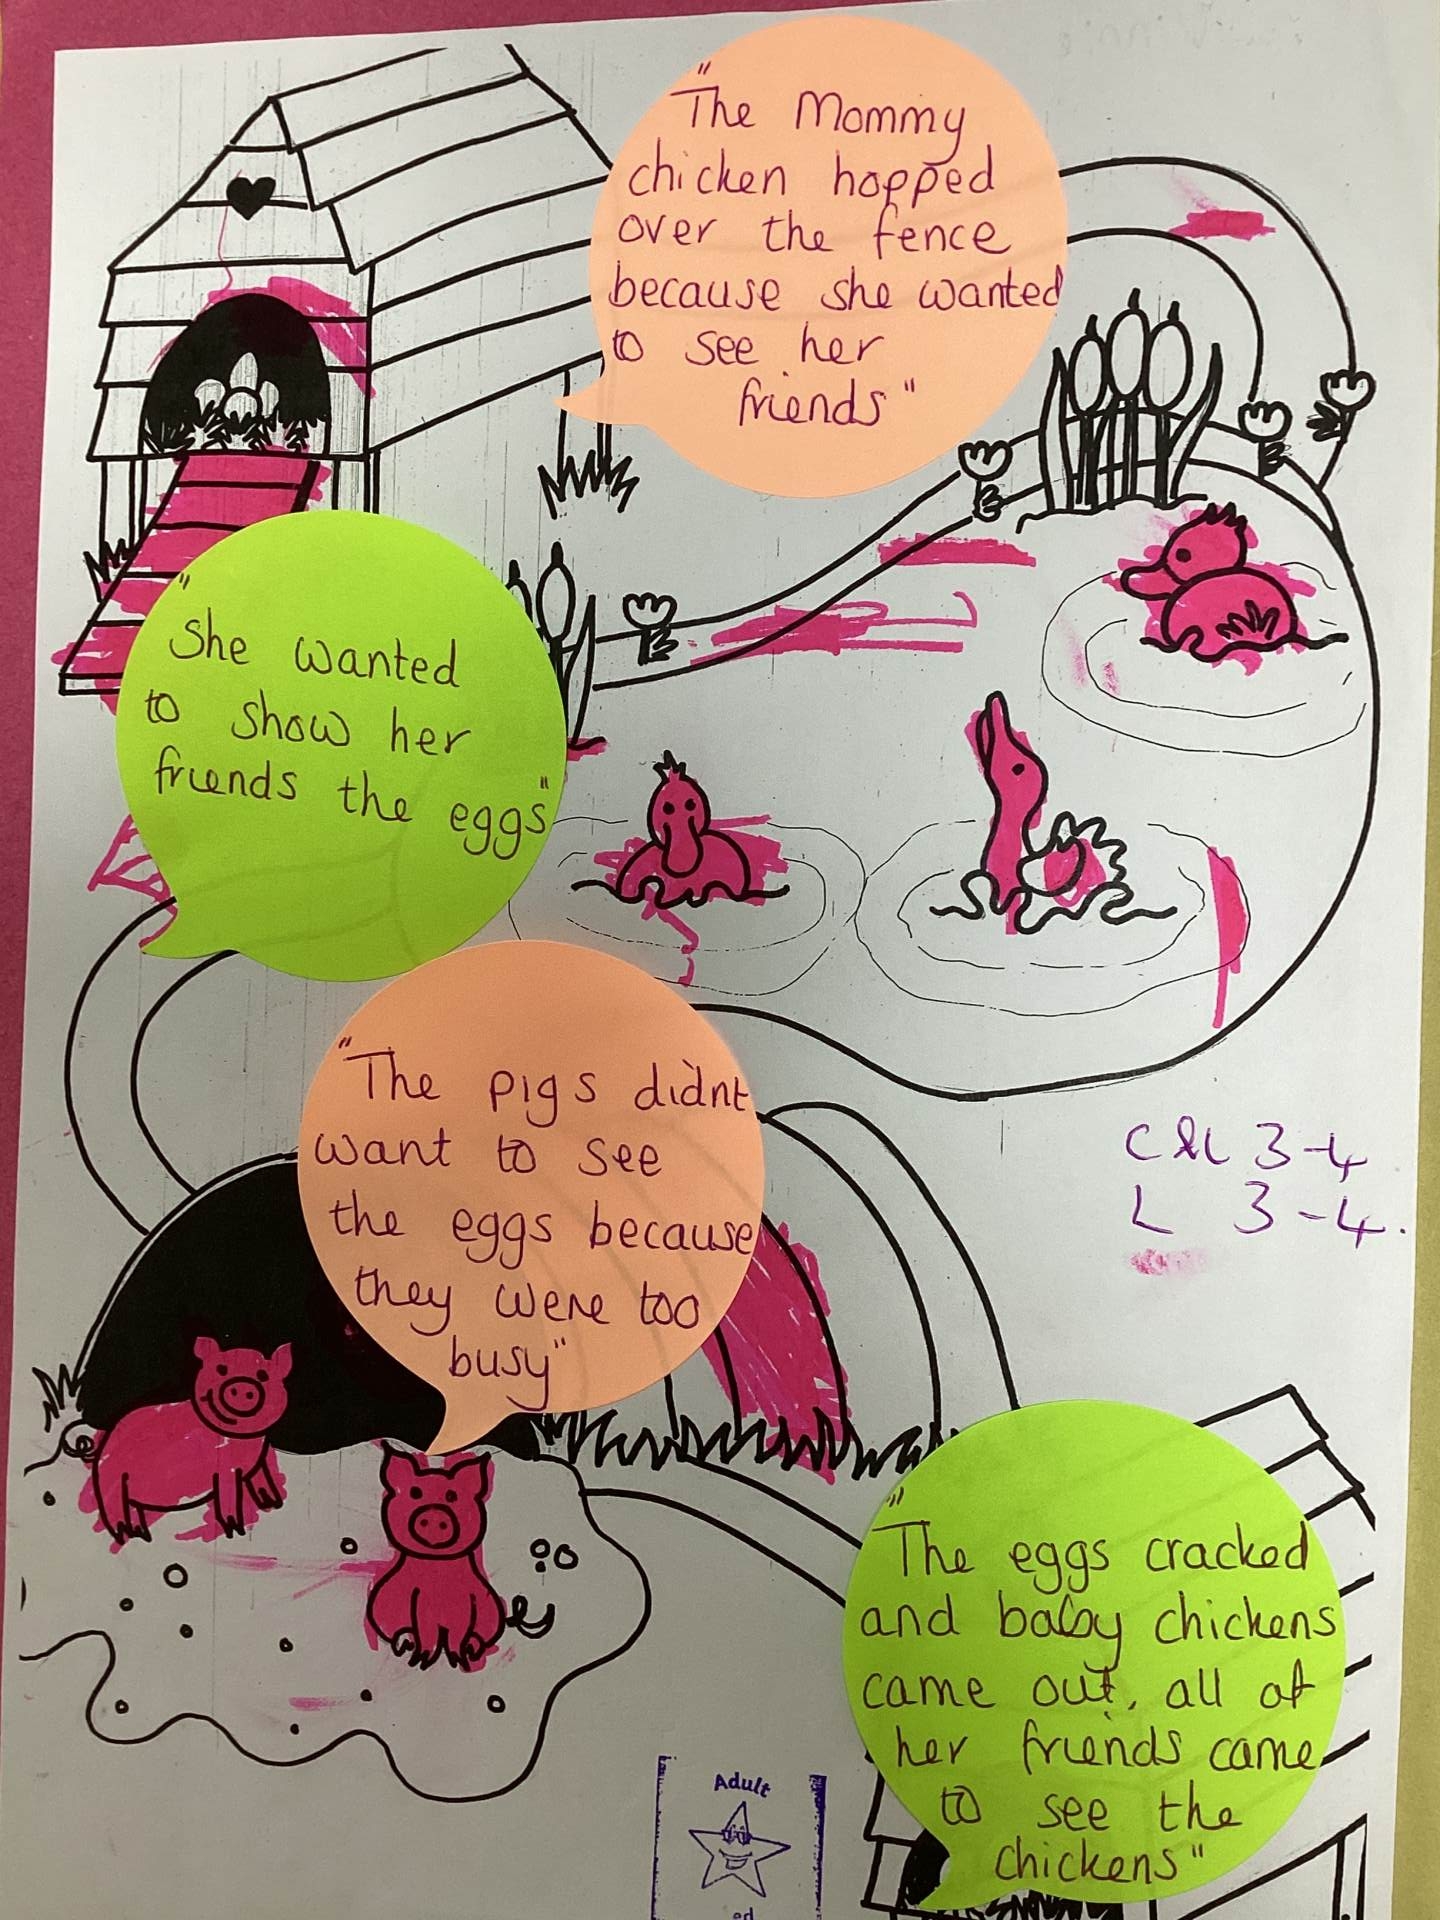 "The Mommy
chicken hopped
over the fence
because she wanted
to see her
friends"
"She wanted
to show her
friends the eggs"
"The pigs didn't
want to see
the eggs because
they were too
busy"
C&L 3-4
L 3-4.
"The eggs cracked
and baby chickens
came out, all of
her friends came
to see the
chickens"
Adult